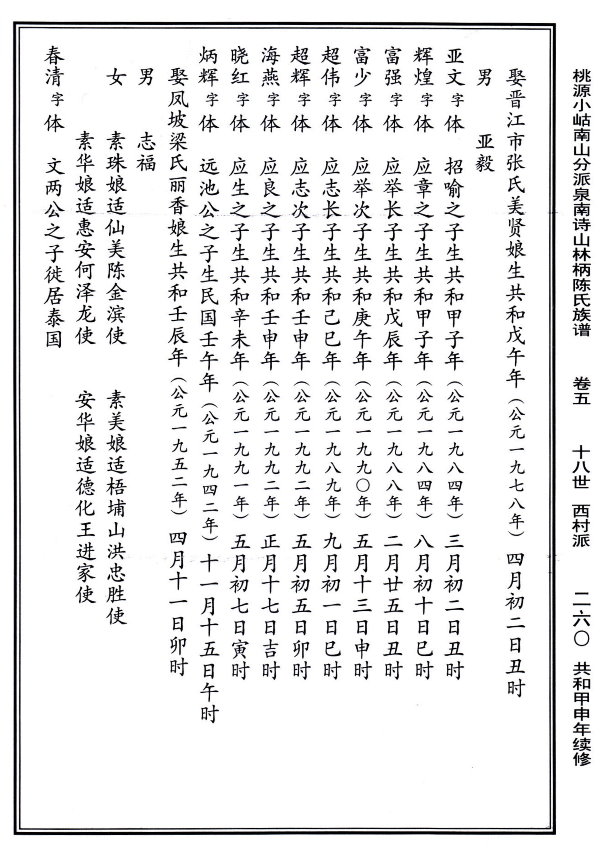 桃源小岵南山分派泉南诗山林柄陈氏族谱 卷五 十八世 西村派 二六〇 共和甲申年续修
娶晋江市张氏美贤娘生共和戊午年（公元一九七八年）四月初二日丑时
男 亚毅
亚文字体 招喻之子生共和甲子年（公元一九八四年）三月初二日丑时
辉煌字体 应章之子生共和甲子年（公元一九八四年）八月初十日巳时
富强字体 应举长子生共和戊辰年（公元一九八八年）二月廿五日丑时
富少字体 应举次子生共和庚午年（公元一九九〇年）五月十三日申时
超伟字体 应志长子生共和己巳年（公元一九八九年）九月初一日巳时
超辉字体 应志次子生共和壬申年（公元一九九二年）五月初五日卯时
海燕字体 应良之子生共和壬申年（公元一九九二年）正月十七日吉时
晓红字体 应生之子生共和辛未年（公元一九九一年）五月初七日寅时
炳辉字体 远池公之子生民国壬午年（公元一九四二年）十一月十五日午时
娶凤坡梁氏丽香娘生共和壬辰年（公元一九五二年）四月十一日卯时
男 志福
女 素珠娘适仙美陈金滨使 素美娘适梧埔山洪忠胜使
素华娘适惠安何泽龙使 安华娘适德化王进家使
春清字体 文两公之子徙居泰国